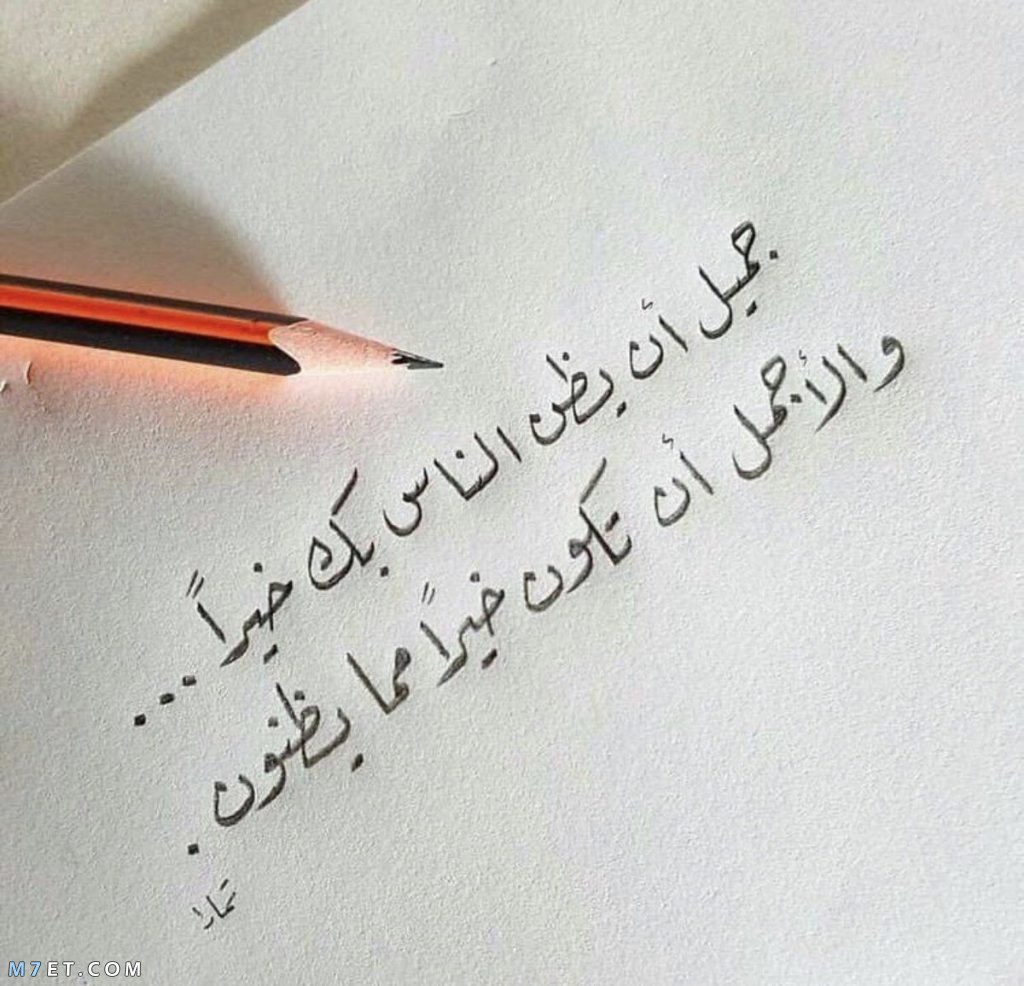 جميل أن يظن الناس بك خيراً ...
والأجمل أن تكون خيراً مما يظنون .
M7ET.COM